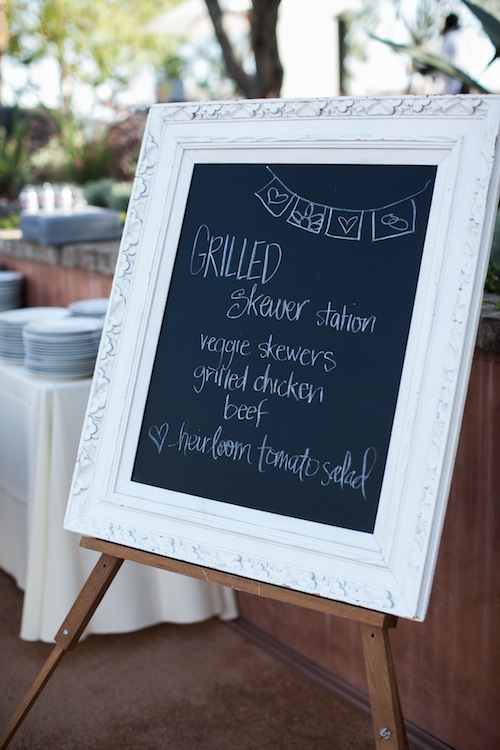 GRILLED
Skewer station
veggie skewers
grilled chicken
beef
heirloom tomato salad